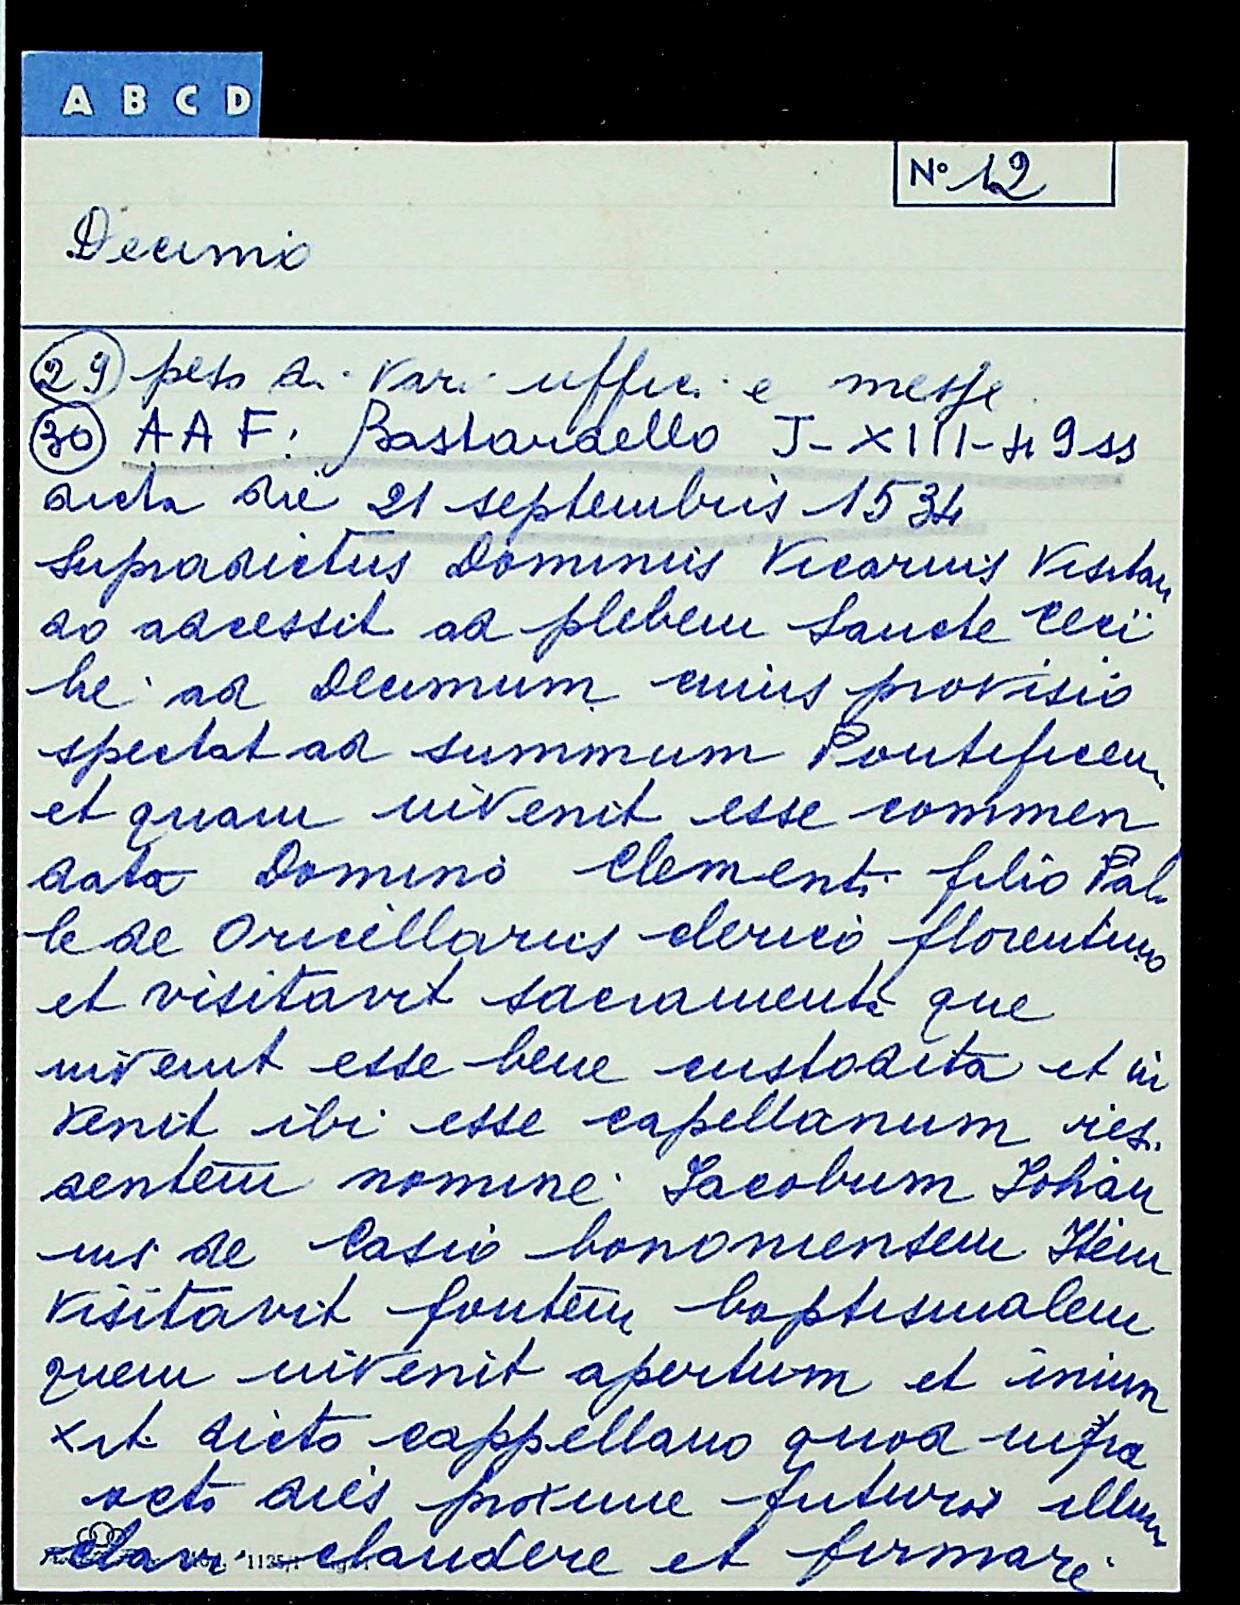 A B C D
Nº 12
Decimo
29 peso di vari uffici e messe
30 AAF: Bastardello J-XIII-49ss
dicta die 21 septembris 1534
Supradictus Dominus Vicarius Visitan
do adcessit ad plebem Sancte Ceci
lie ad Decimum cuius provisio
spectat ad summum Pontificem
et quam invenit esse commen
data Domino Clementi filio Pal
le de Oricillariis clerico florentino
et visitavit sacramenta que
invenit esse bene custodita et in
venit ibi esse capellanum resi
dentem nomine Jacobum Johan
nis de Casio bononiensem Item
visitavit fontem baptismalem
quem invenit apertum et iniun
xit dicto cappellano quod infra
octo dies proxime futuros illum
clavi claudere et firmari
1125/1